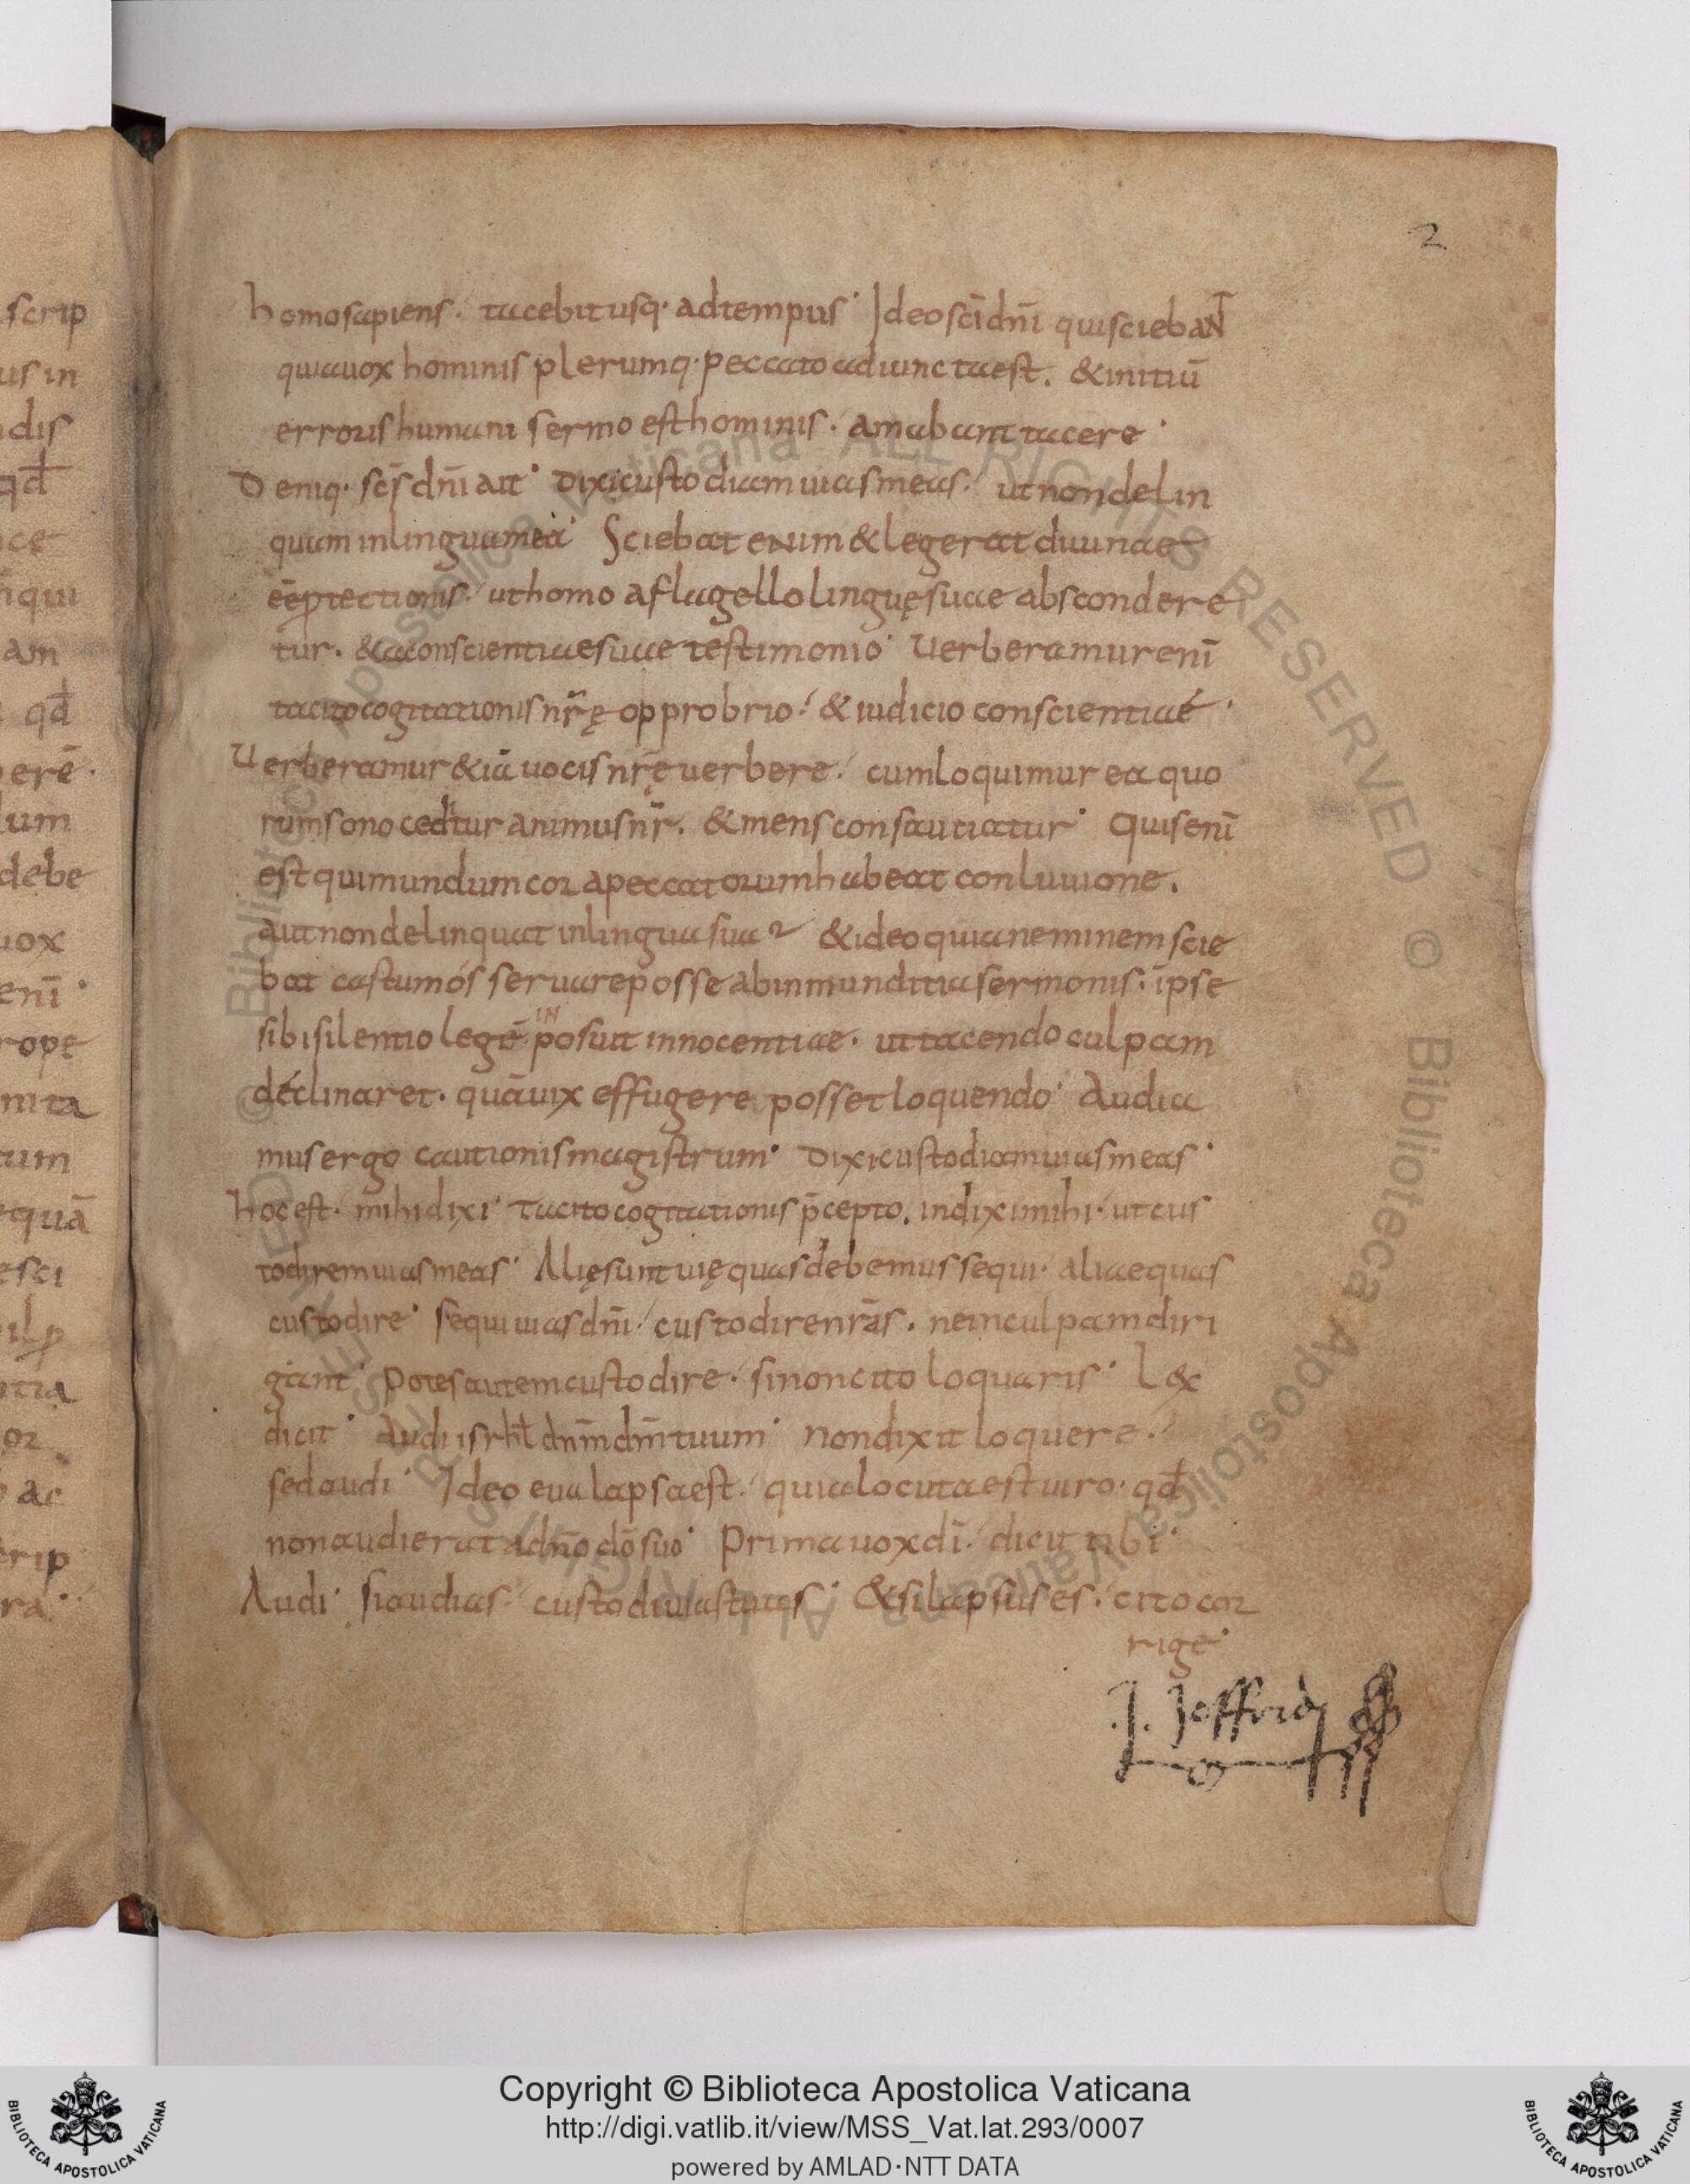 2
homo sapiens. tacebit usq· ad tempus· Ideo sc̄i dn̄i qui sciebaNT
quia uox hominis plerumq· peccato adiuncta est. & initiū
erroris humani sermo est hominis. amabant tacere·
Deniq· sc̄s dn̄i ait· Dixi custodiam uias meas. ut non delin
quam in lingua mea· Sciebat eNim & legerat diuinae
eē p̱tectionis. ut homo a flagello linguę suae abscondere
tur. & a conscientiae suae testimonio· Uerberamur enī
tacito cogitationis nr̄ę opprobrio. & iudicio conscientiae·
Uerberamur & iā uocis nr̄ę uerbere. cum loquimur ea quo
rum sono ceditur animus nr̄. & mens consautiatur· Quis enī
est qui mundum cor a peccatorum habeat conluuione.
aut non delinquat in lingua sua? & ideo quia neminem scie
bat castum ós seruare posse ab inmunditia sermonis. ipse
sibi silentio legē INposuit innocentiae. ut tacendo culpam
declinaret. quā uix effugere posset loquendo· Audia
mus ergo cautionis magistrum· Dixi custodiam uias meas·
hoc est. mihi dixi· Tacito cogitationis p̄cepto. indixi mihi. ut cus
todirem uias meas· Alię sunt uię quas debemus sequi. aliae quas
custodire· Sequi uias dn̄i. custodire nr̄as. ne in culpam diri
gant· Potes autem custodire. si non cito loquaris· L&x
dicit· Audi isrhl dn̄m dm̄ tuum· Non dixit loquere.
sed audi· Ideo eua lapsa est. quia locuta est uiro. qđ
non audierat a dn̄o dō suo· Prima uox dī. dicit tibi·
Audi· si audias. custodi uias tuas· & si lapsus es. cito cor
rige·
scrip
us in
dis
qđ
ce
qui
am
qđ
erē·
lum
debe
uox
enī·
rope
nita
tum
quā
esci
il p̱
ntia
or
ac
crip
ra·
© Biblioteca Apostolica Vaticana ALL RIGHTS RESERVED
© Biblioteca Apostolica Vaticana ALL RIGHTS RESERVED
BIBLIOTECA APOSTOLICA VATICANA
Copyright © Biblioteca Apostolica Vaticana
http://digi.vatlib.it/view/MSS_Vat.lat.293/0007
powered by AMLAD·NTT DATA
BIBLIOTECA APOSTOLICA VATICANA